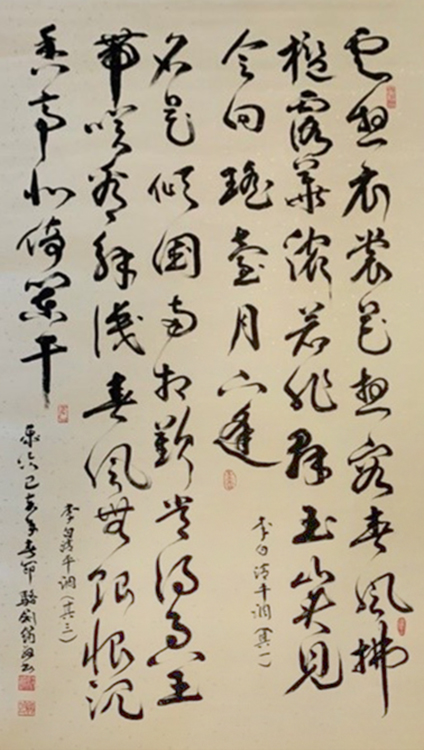 云想衣裳花想容春风拂
槛露華浓若非群玉山头见
会向瑶臺月下逢
李白清平调（其一）
名花倾國两相歡常得君王
带笑看解識春风無限恨沉
香亭北倚阑干
李白清平调（其三）
己亥年春节